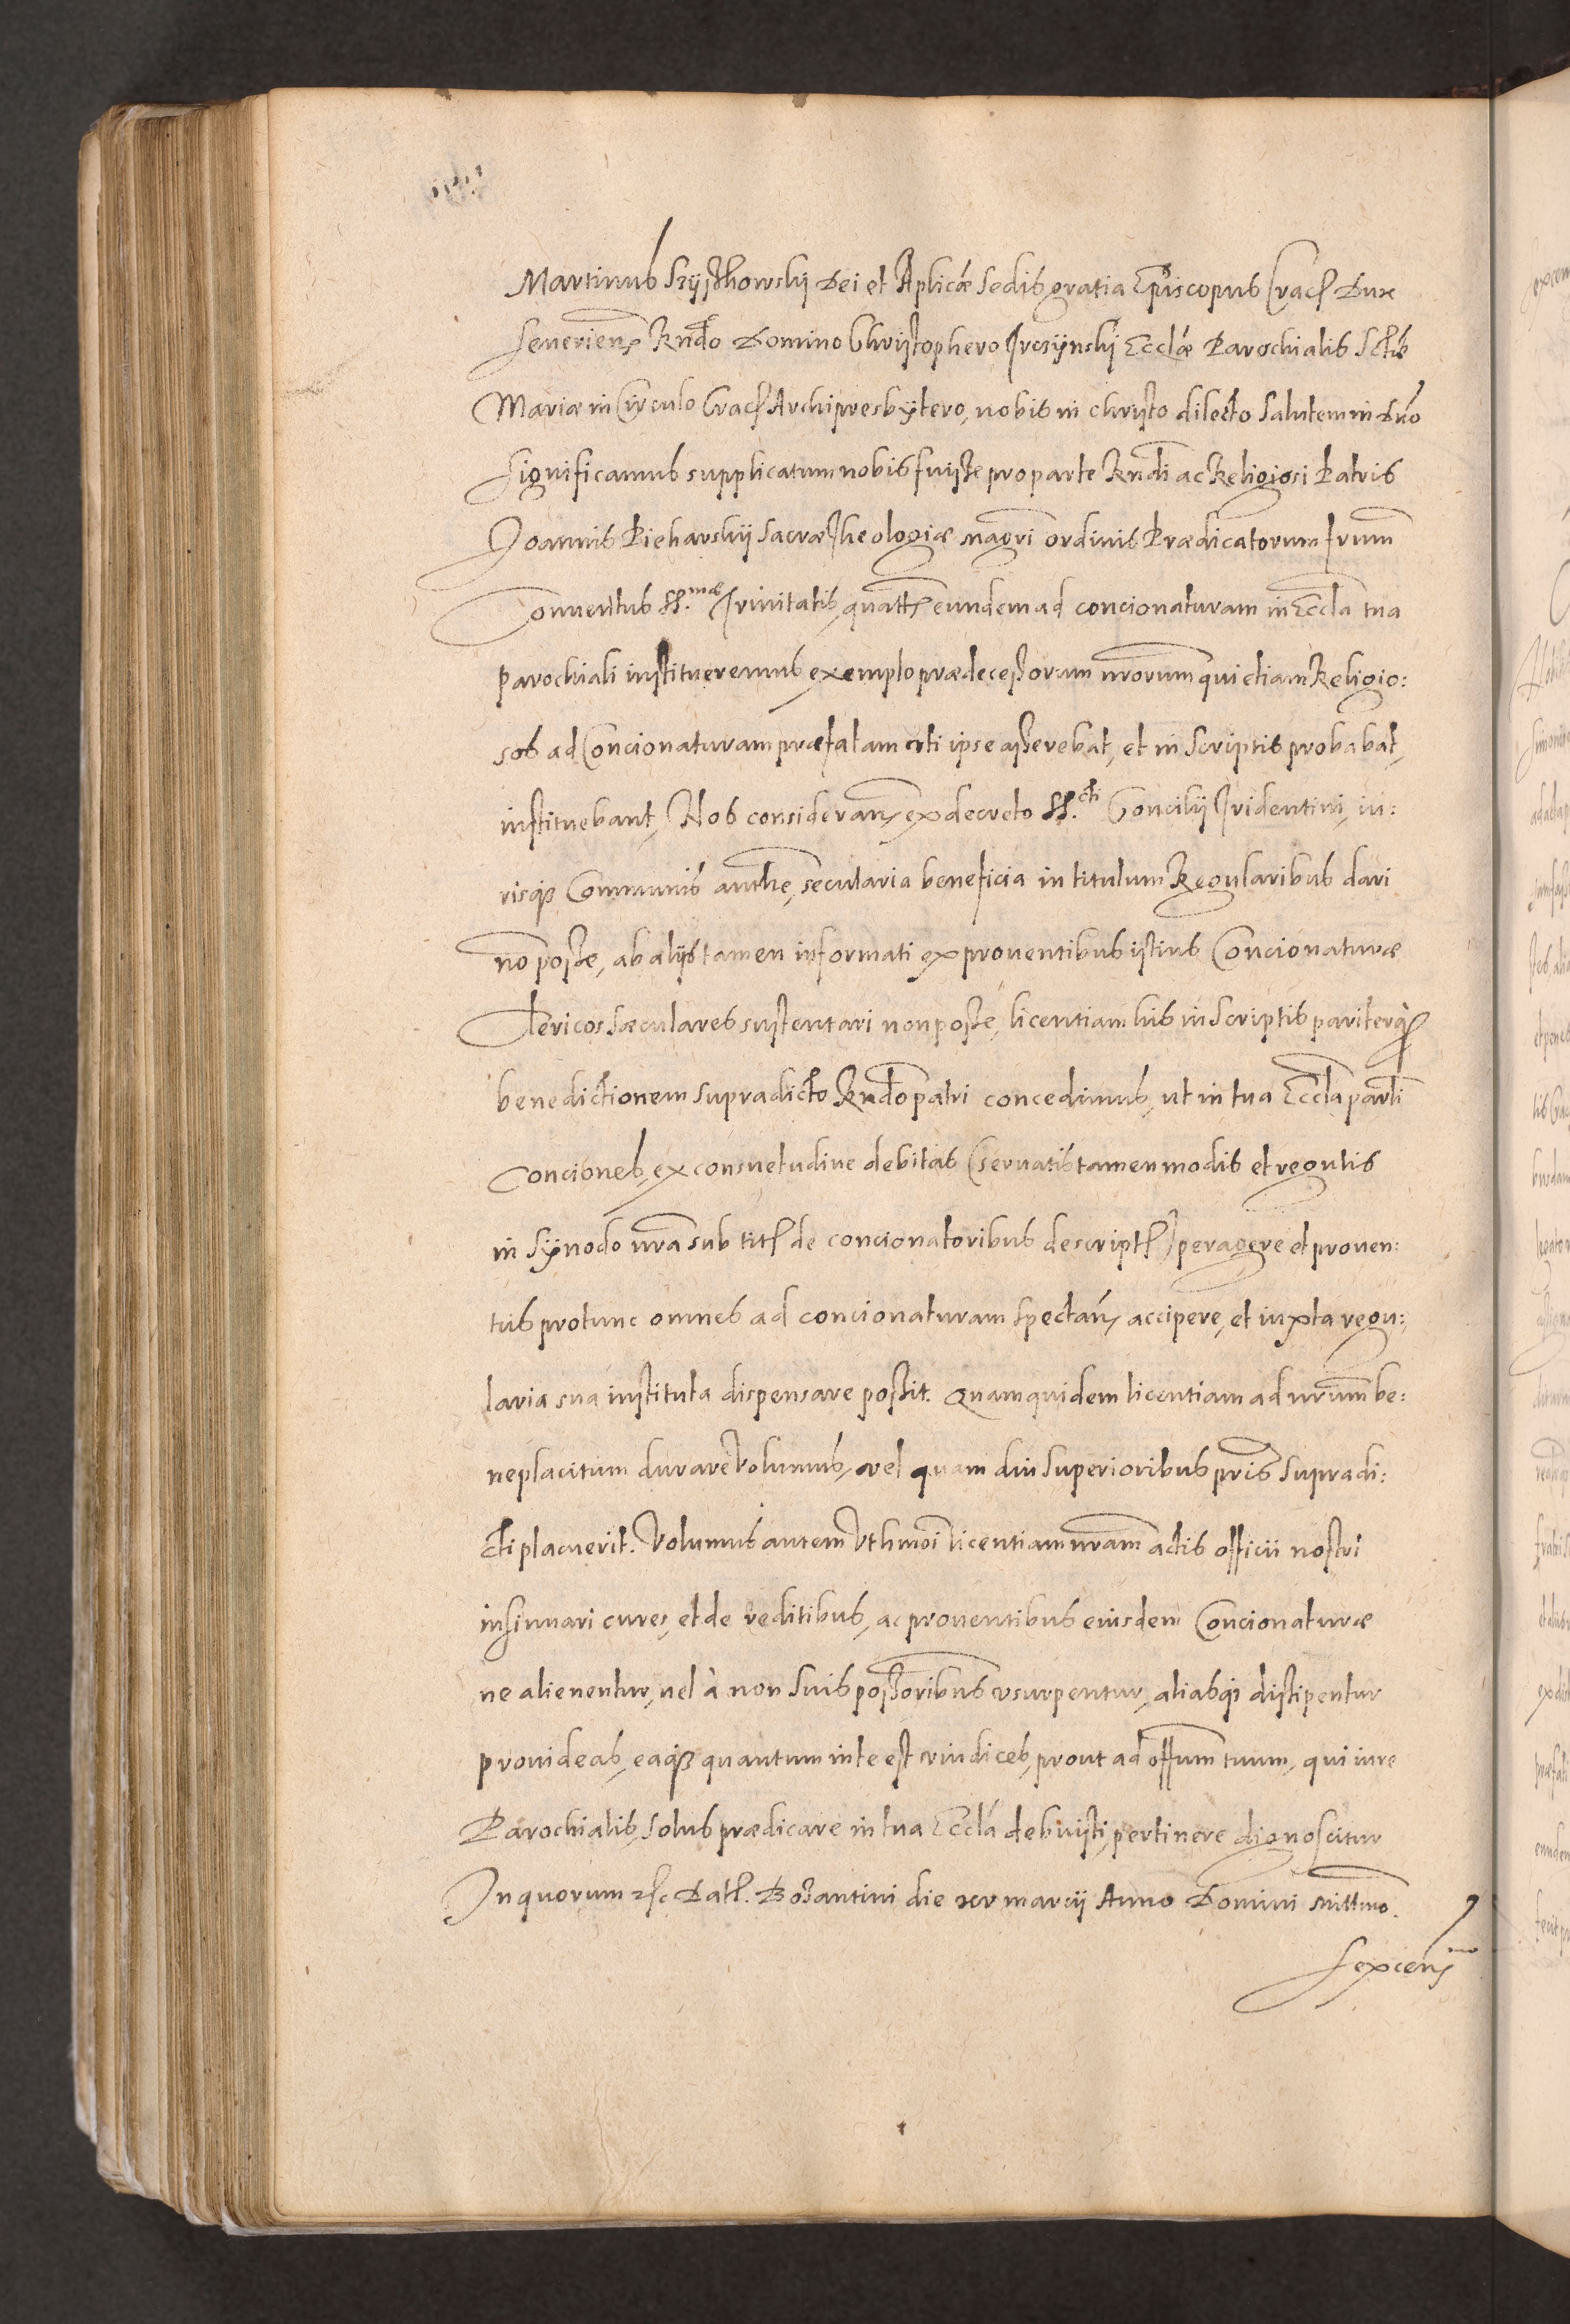 Martinus Szÿszkowskÿ Dei et Aplicæ Sedis gratia Epỉscopus Crac̄ Dux
Severien̄ Rndo Domino Christophero Trcsÿnskÿ Ecclæ Parochialis Sctæ
Mariæ in Circulo Crac̄ Archipresbÿtero, nobis in christo dilecto Salutem in Dno
Significamus supplicatum nobis fuisse pro parte Rndi ac Religiosi Patris
Joannis Piekarskÿ Sacræ Theologiæ magri ordinis Prædicatorum Frum
Conventus SS.mæ Trinitatis, quatt̄ eundem ad concionaturam in Eccla tua
parochiali institueremus, exemplo prædecessorum nrorum qui etiam Religio:
sos ad Concionaturam præfatam uti ipse asserebat, et in Scriptis probabat,
instituebant, Nos consideran̄ ex decreto SS.cti Concilÿ Tridentini, iu:
risq3 Communis authe, secularia beneficia in titulum Regularibus dari
no posse, ab alÿs tamen informati ex proventibus istius Concionaturæ
Clericos sæculares sustentari non posse, licentiam his in Scriptis pariterq3
benedictionem supradicto Rndo patri concedimus, ut in tua Eccla parli
Conciones, ex consuetudine debitas (servatis tamen modis et regulis
in Sÿnodo nra sub tit̄ de concionatoribus descript̄) peragere et proven:
tus protunc omnes ad concionaturam spectan̄ accipere, et iuxta regu:
laria sua instituta dispensare possit. Quam quidem licentiam ad nrum be:
neplacitum durare Volumus, vel quam diu Superioribus pris Supradi:
cti placuerit. Volumus autem Vt hmoi licentiam nram actis officii nostri
insinuari cures, et de reditibus, ac proventibus eiusdem Concionaturæ
ne alienentur, vel à non suis possoribus vsurpentur, aliasq3 dissipentur
provideas, eaq3 quantum in te est vindices, prout ad offum tuum, qui iure
Parochialis, solus prædicare in tua Eccla debuisti, pertinere dignoscitur
In quorum etc Dat̄. Bozantini die xv marcÿ Anno Domini millmo.
sexcen̄mo